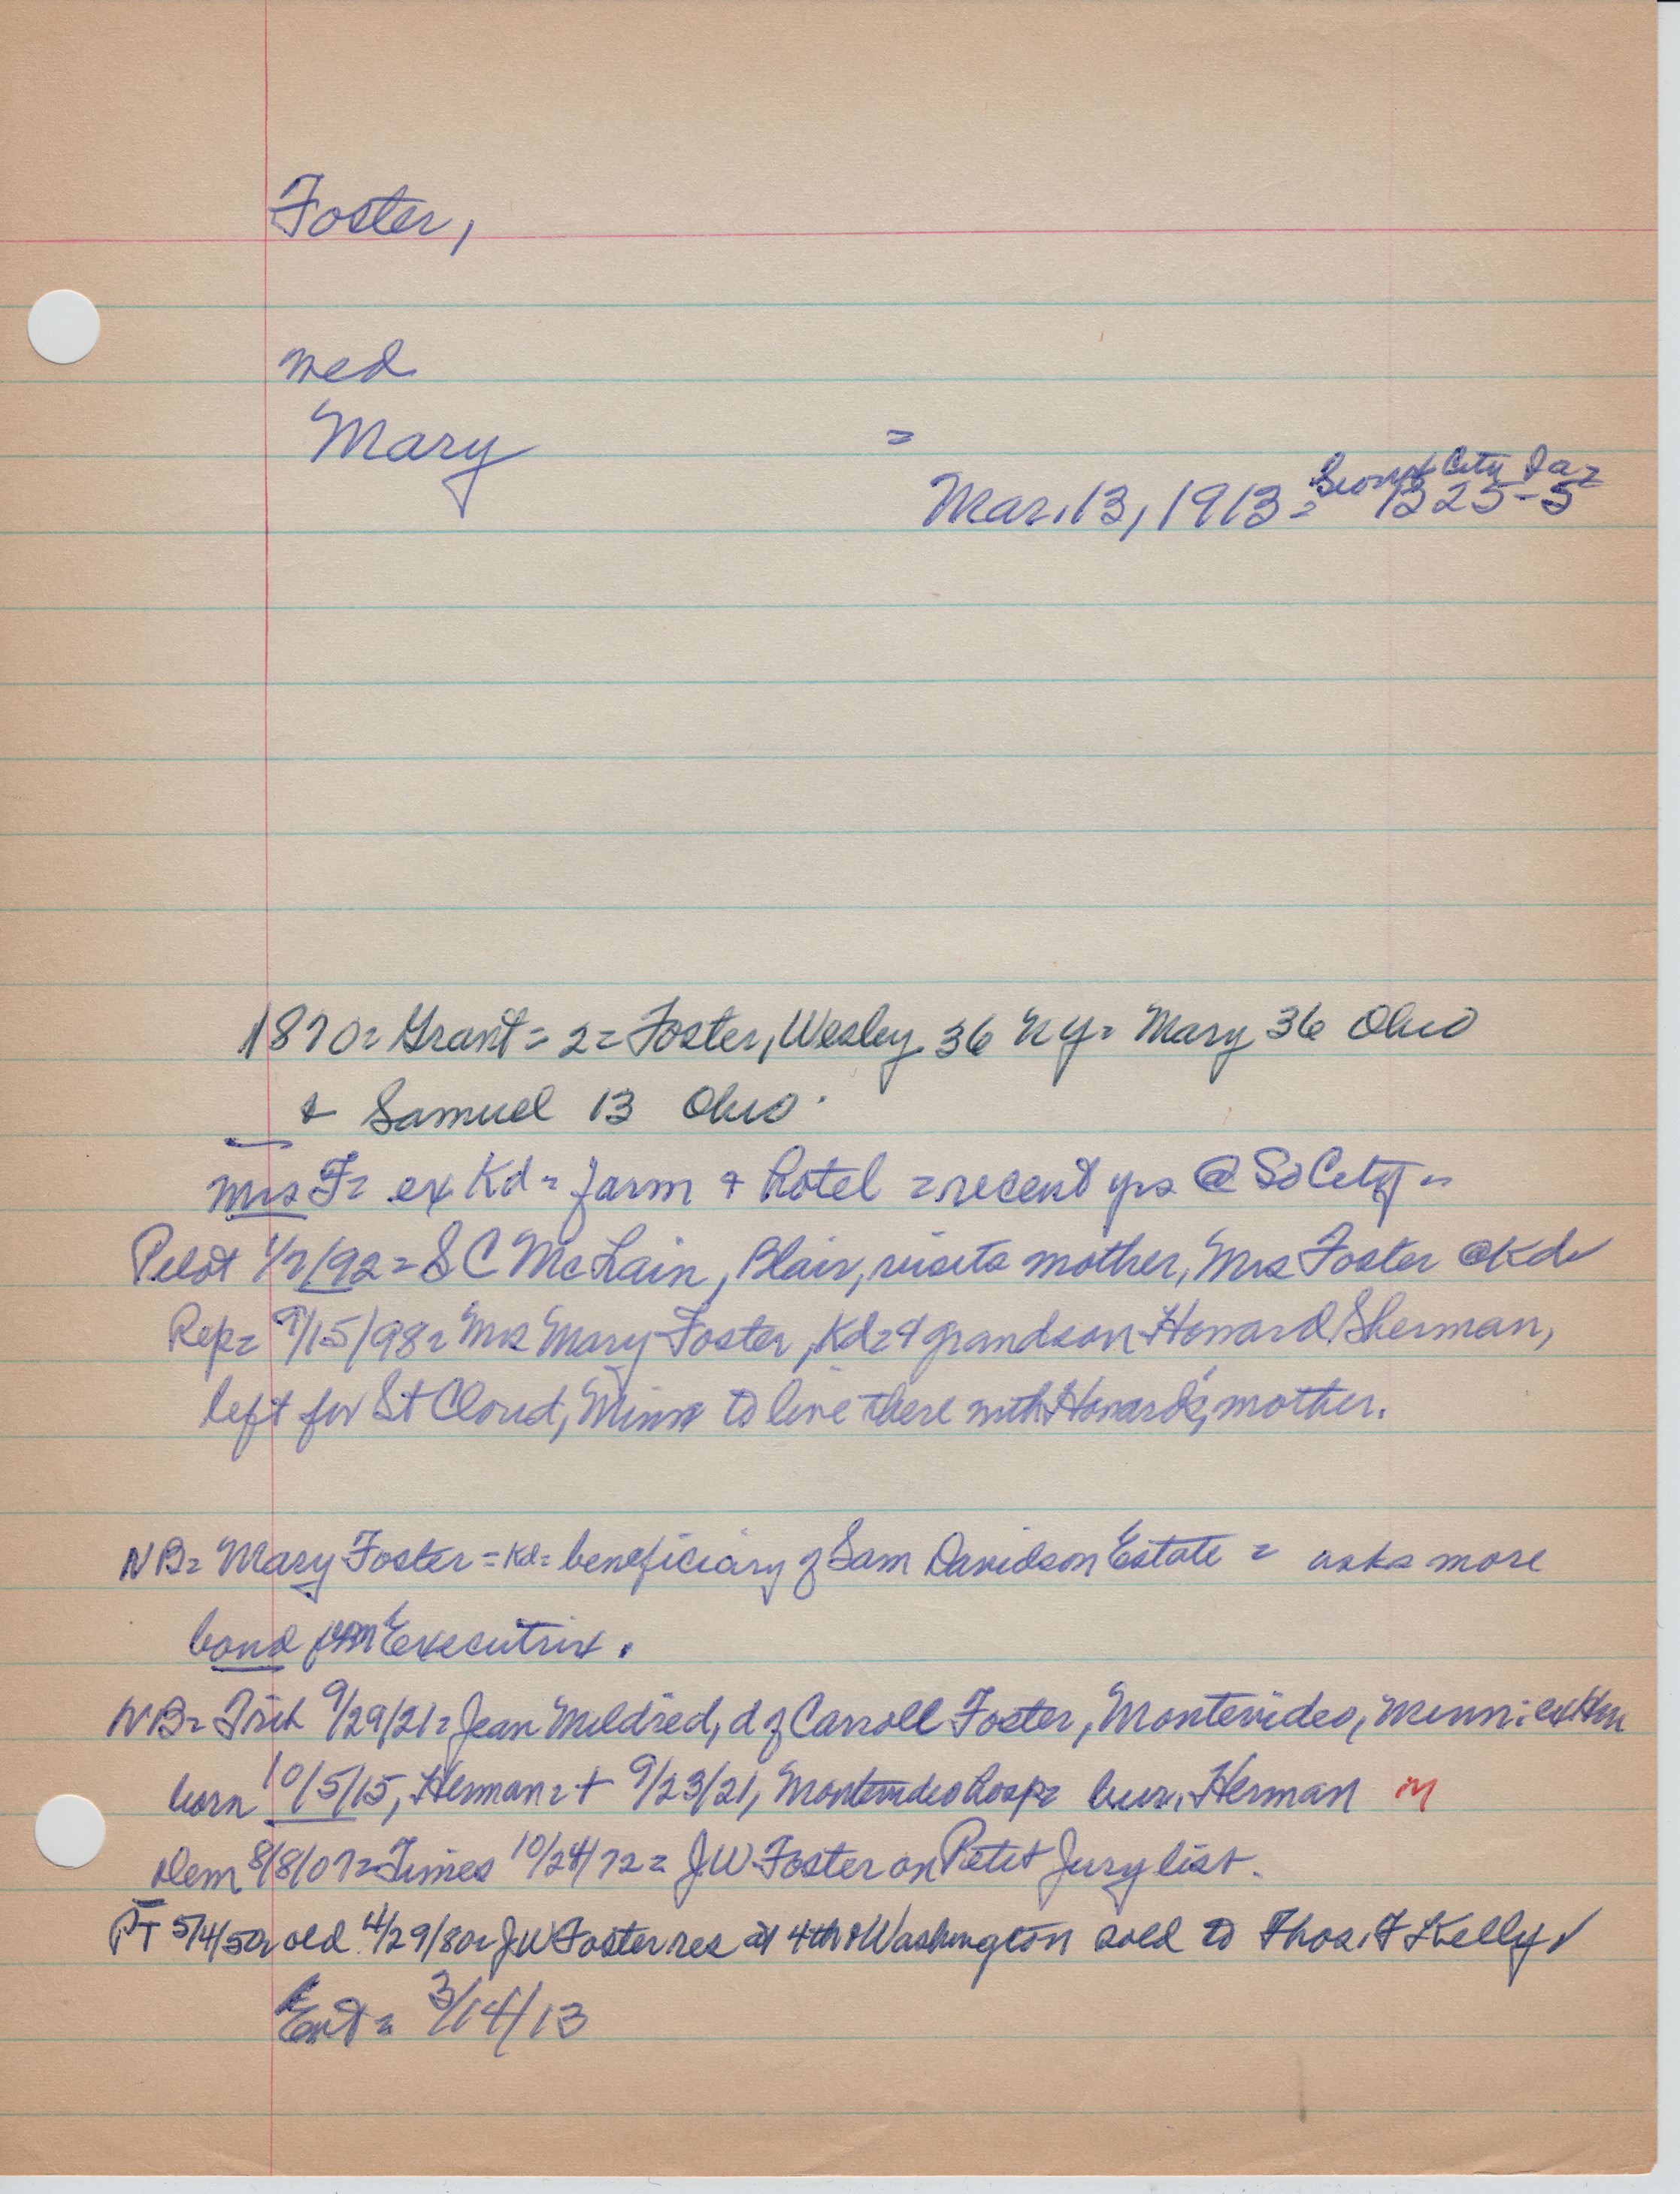 Foster,
med
Mary =
Sioux City Ia =
Mar. 13, 1913 = 1325-5
1870 = Grant = 2 = Foster, Wesley 36 NY = Mary 36 Ohio
& Samuel 13 Ohio.
Mrs F = ex Kd = farm & hotel = recent yrs @ So City =
Pilot 1/7/92 = S C McLain, Blair, visits mother, Mrs Foster @ Kd
Rep = 9/15/98 = Mrs Mary Foster, Kd = & grandson Howard Sherman,
left for St Cloud, Minn to live there with Howard's mother.
NB = Mary Foster = Kd = beneficiary of Sam Davidson Estate = asks more
bond from Executrix.
NB = Trib 9/29/21 = Jean Mildred, d of Carroll Foster, Montevideo, Minn: ex Hm
born 10/5/15, Herman = + 9/23/21, Montevideo hosp = bur. Herman m
Dem 8/8/07 = Times 10/24/72 = J W Foster on Petit Jury list.
PT 5/4/50 = old 4/29/80 = JW Foster res at 4th & Washington sold to Thos. F Kelly
Ent = 3/14/13